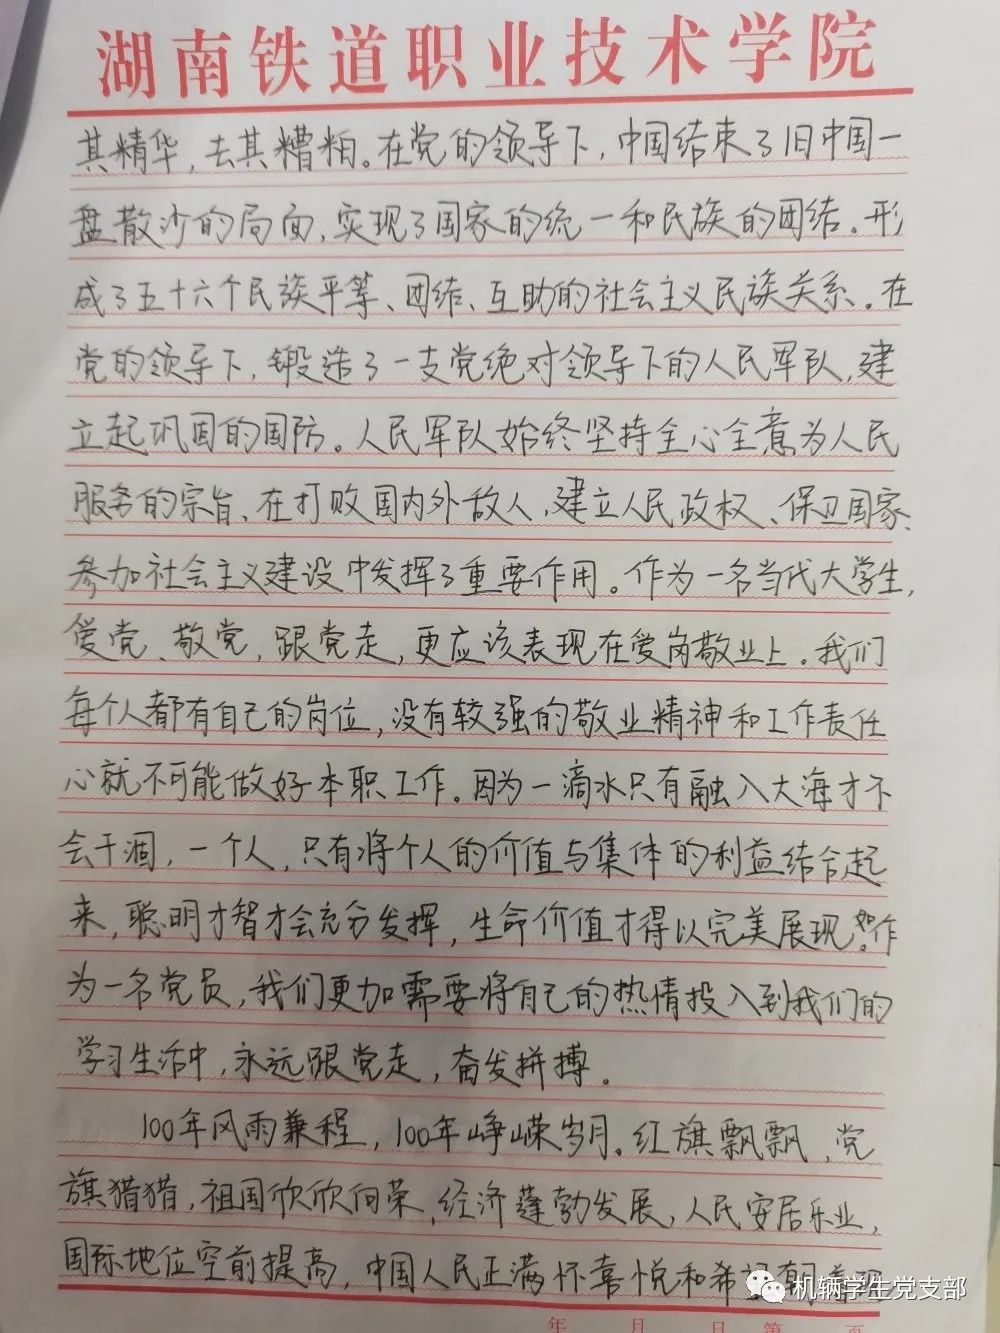 湖南铁道职业技术学院
其精华，去其糟粕。在党的领导下，中国结束了旧中国一
盘散沙的局面，实现了国家的统一和民族的团结。形
成了五十六个民族平等、团结、互助的社会主义民族关系。在
党的领导下，锻造了一支党绝对领导下的人民军队，建
立起巩固的国防。人民军队始终坚持全心全意为人民
服务的宗旨、在打败国内外敌人，建立人民政权、保卫国家、
参加社会主义建设中发挥了重要作用。作为一名当代大学生，
爱党、敬党，跟党走，更应该表现在爱岗敬业上。我们
每个人都有自己的岗位，没有较强的敬业精神和工作责任
心就不可能做好本职工作。因为一滴水只有融入大海才不
会干涸，一个人，只有将个人的价值与集体的利益结合起
来，聪明才智才会充分发挥，生命价值才得以完美展现。作
为一名党员，我们更加需要将自己的热情投入到我们的
学习生活中，永远跟党走，奋发拼搏。
100年风雨兼程，100年峥嵘岁月。红旗飘飘，党
旗猎猎，祖国欣欣向荣，经济蓬勃发展，人民安居乐业，
国际地位空前提高，中国人民正满怀喜悦和希望朝着
机辆学生党支部
年 月 日 第 页